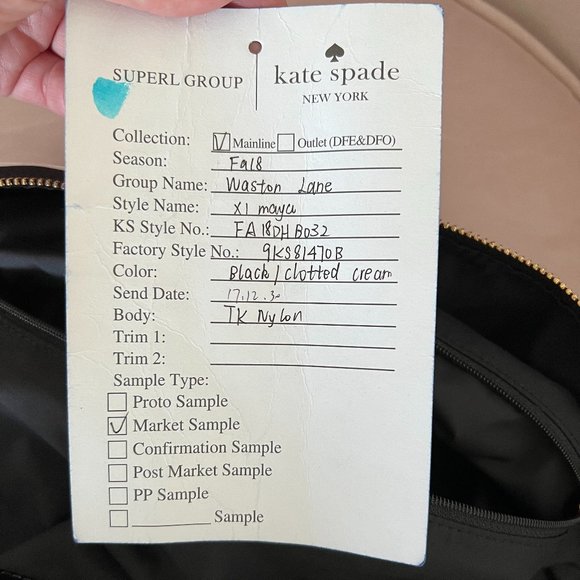 SUPERL GROUP
kate spade
NEW YORK
Collection: Mainline Outlet (DFE&DFO)
Season: Fa18
Group Name: Waston Lane
Style Name: Xl maya
KS Style No.: FA18DHB032
Factory Style No.: 9KS81470B
Color: Black/clotted cream
Send Date: 17.12.30
Body: TK Nylon
Trim 1:
Trim 2:
Sample Type:
Proto Sample
Market Sample
Confirmation Sample
Post Market Sample
PP Sample
Sample